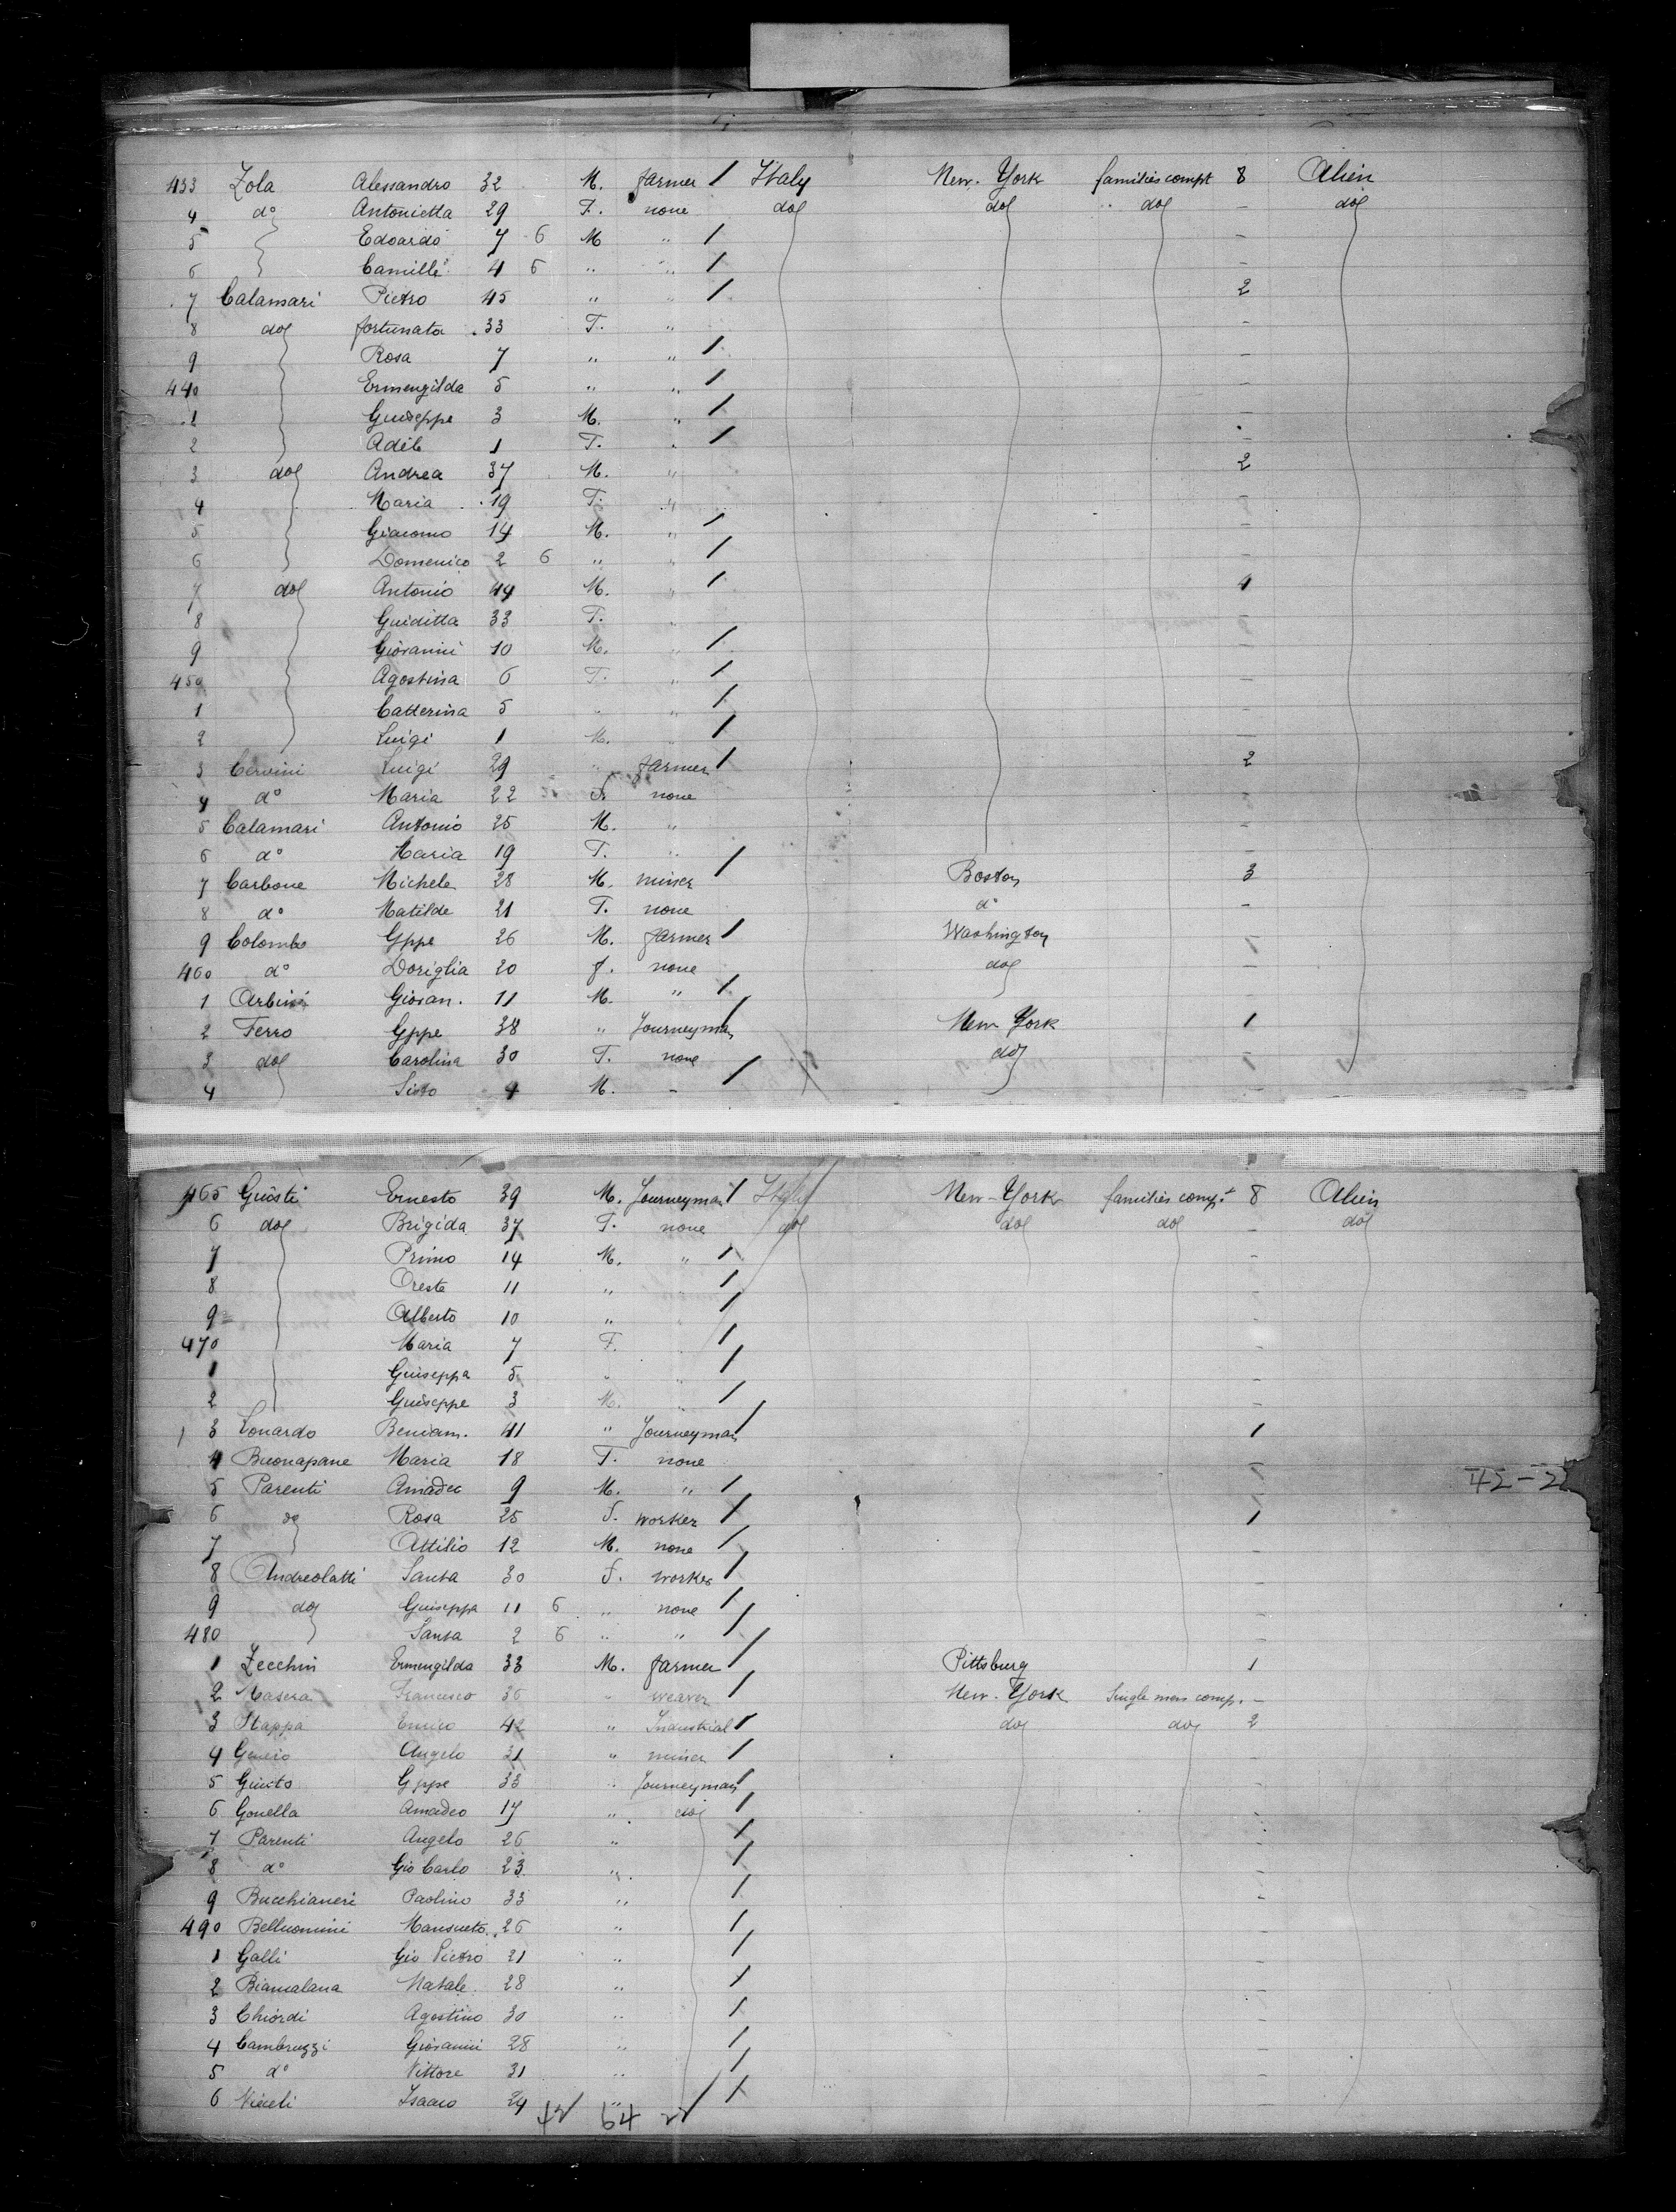 433 Zola Alessandro 32 M. farmer / Italy New-York families compt 8 Alien
4 do Antonietta 29 F. none do do do - do
5 Edoardo 7 6 M " / -
6 Camillo 4 6 " " / -
7 Calamari Pietro 45 " " / 2
8 do fortunata 33 F. " -
9 Rosa 7 " " / -
440 Ermengilda 5 " " / -
1 Guiseppe 3 M. " / -
2 Adele 1 F. " / -
3 do Andrea 37 M. " 2
4 Maria 19 F. " -
5 Giacomo 14 M. " / -
6 Domenico 2 6 " " / -
7 do Antonio 44 M. " / 4
8 Guiditta 33 F. " -
9 Giovanni 10 M. " / -
450 Agostina 6 F. " / -
1 Catterina 5 " " / -
2 Luigi 1 M. " / -
3 Cervini Luigi 29 " farmer / 2
4 do Maria 22 F. none -
5 Calamari Antonio 25 M. " -
6 do Maria 19 F. " -
7 Carbone Michele 28 M. miner / Boston 3
8 do Matilde 21 F. none do -
9 Colombo Gppe 26 M. farmer / Washington -
460 do Doriglia 20 f. none do -
1 Arbini Giovan. 11 M. " / -
2 Ferro Gppe 38 " Journeyman / New York 1
3 do Carolina 30 F. none do -
4 Sisto 4 M. - / -
465 Giusti Ernesto 39 M. Journeyman / Italy New-York families compt 8 Alien
6 do Brigida 37 F. none do do do - do
7 Primo 14 M. " / -
8 Oreste 11 " " / -
9 Alberto 10 " /  -
470 Maria 7 F. / -
1 Guiseppa 5 " / -
2 Guiseppe 3 M. / -
3 Lonardo Beniam. 41 " Journeyman / 1
4 Buonapane Maria 18 F. none -
5 Parenti Amadeo 9 M. " / - 42-22
6 do Rosa 25 F. worker / 1
7 Attilio 12 M. none / -
8 Andreolatti Santa 30 f. worker / -
9 do Guiseppa 11 6 " none / -
480 Santa 2 6 " " / -
1 Zecchin Ermengilda 33 M. farmer / Pittsburg 1
2 Masera Francesco 36 " weaver / New-York Single men comp. -
3 Stappa Enrico 42 " Industrial / do do 2
4 Angelo 31 " miner / -
5 Giunto Gppe 33 " Journeyman / -
6 Gonella Amadeo 17 " do / -
7 Parenti Angelo 26 " / -
8 do Gio Carlo 23 " / -
9 Bucchianeri Paolino 33 " / -
490 Belluomini Mansueto 26 " / -
1 Galli Gio Pietro 21 " / -
2 Biamalana Natale 28 " / -
3 Chiordi Agostino 30 " / -
4 Cambruzzi Giovanni 28 " / -
5 do Vittore 31 " / -
6 Isacco 24 " / -
42 64 22